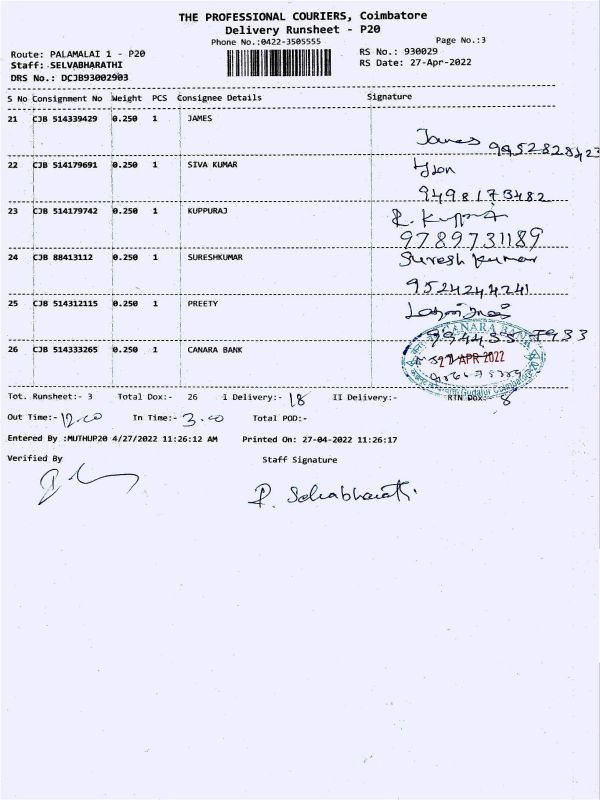 THE PROFESSIONAL COURIERS, Coimbatore
Delivery Runsheet - P20
Phone No.:0422-3505555
Page No.:3
Route: PALAMALAI 1 - P20
RS No.: 930029
Staff: SELVABHARATHI
RS Date: 27-Apr-2022
DRS No.: DCJB93002903
S No Consignment No Weight PCS Consignee Details Signature
21 CJB 514339429 0.250 1 JAMES
James 9952828423
22 CJB 514179691 0.250 1 SIVA KUMAR
9498173482
23 CJB 514179742 0.250 1 KUPPURAJ
R. Kuppu
9789731189
24 CJB 88413112 0.250 1 SURESHKUMAR
Suresh kumar
9524244241
25 CJB 514312115 0.250 1 PREETY
CANARA BANK
26 CJB 514333265 0.250 1 CANARA BANK
27 APR 2022
Tot. Runsheet:- 3 Total Dox:- 26 I Delivery:- 18 II Delivery:- RTN Dox:- 8
Out Time:- 12.00 In Time:- 3.00 Total POD:-
Entered By :MUTHUP20 4/27/2022 11:26:12 AM Printed On: 27-04-2022 11:26:17
Verified By Staff Signature
P. Selvabharathi